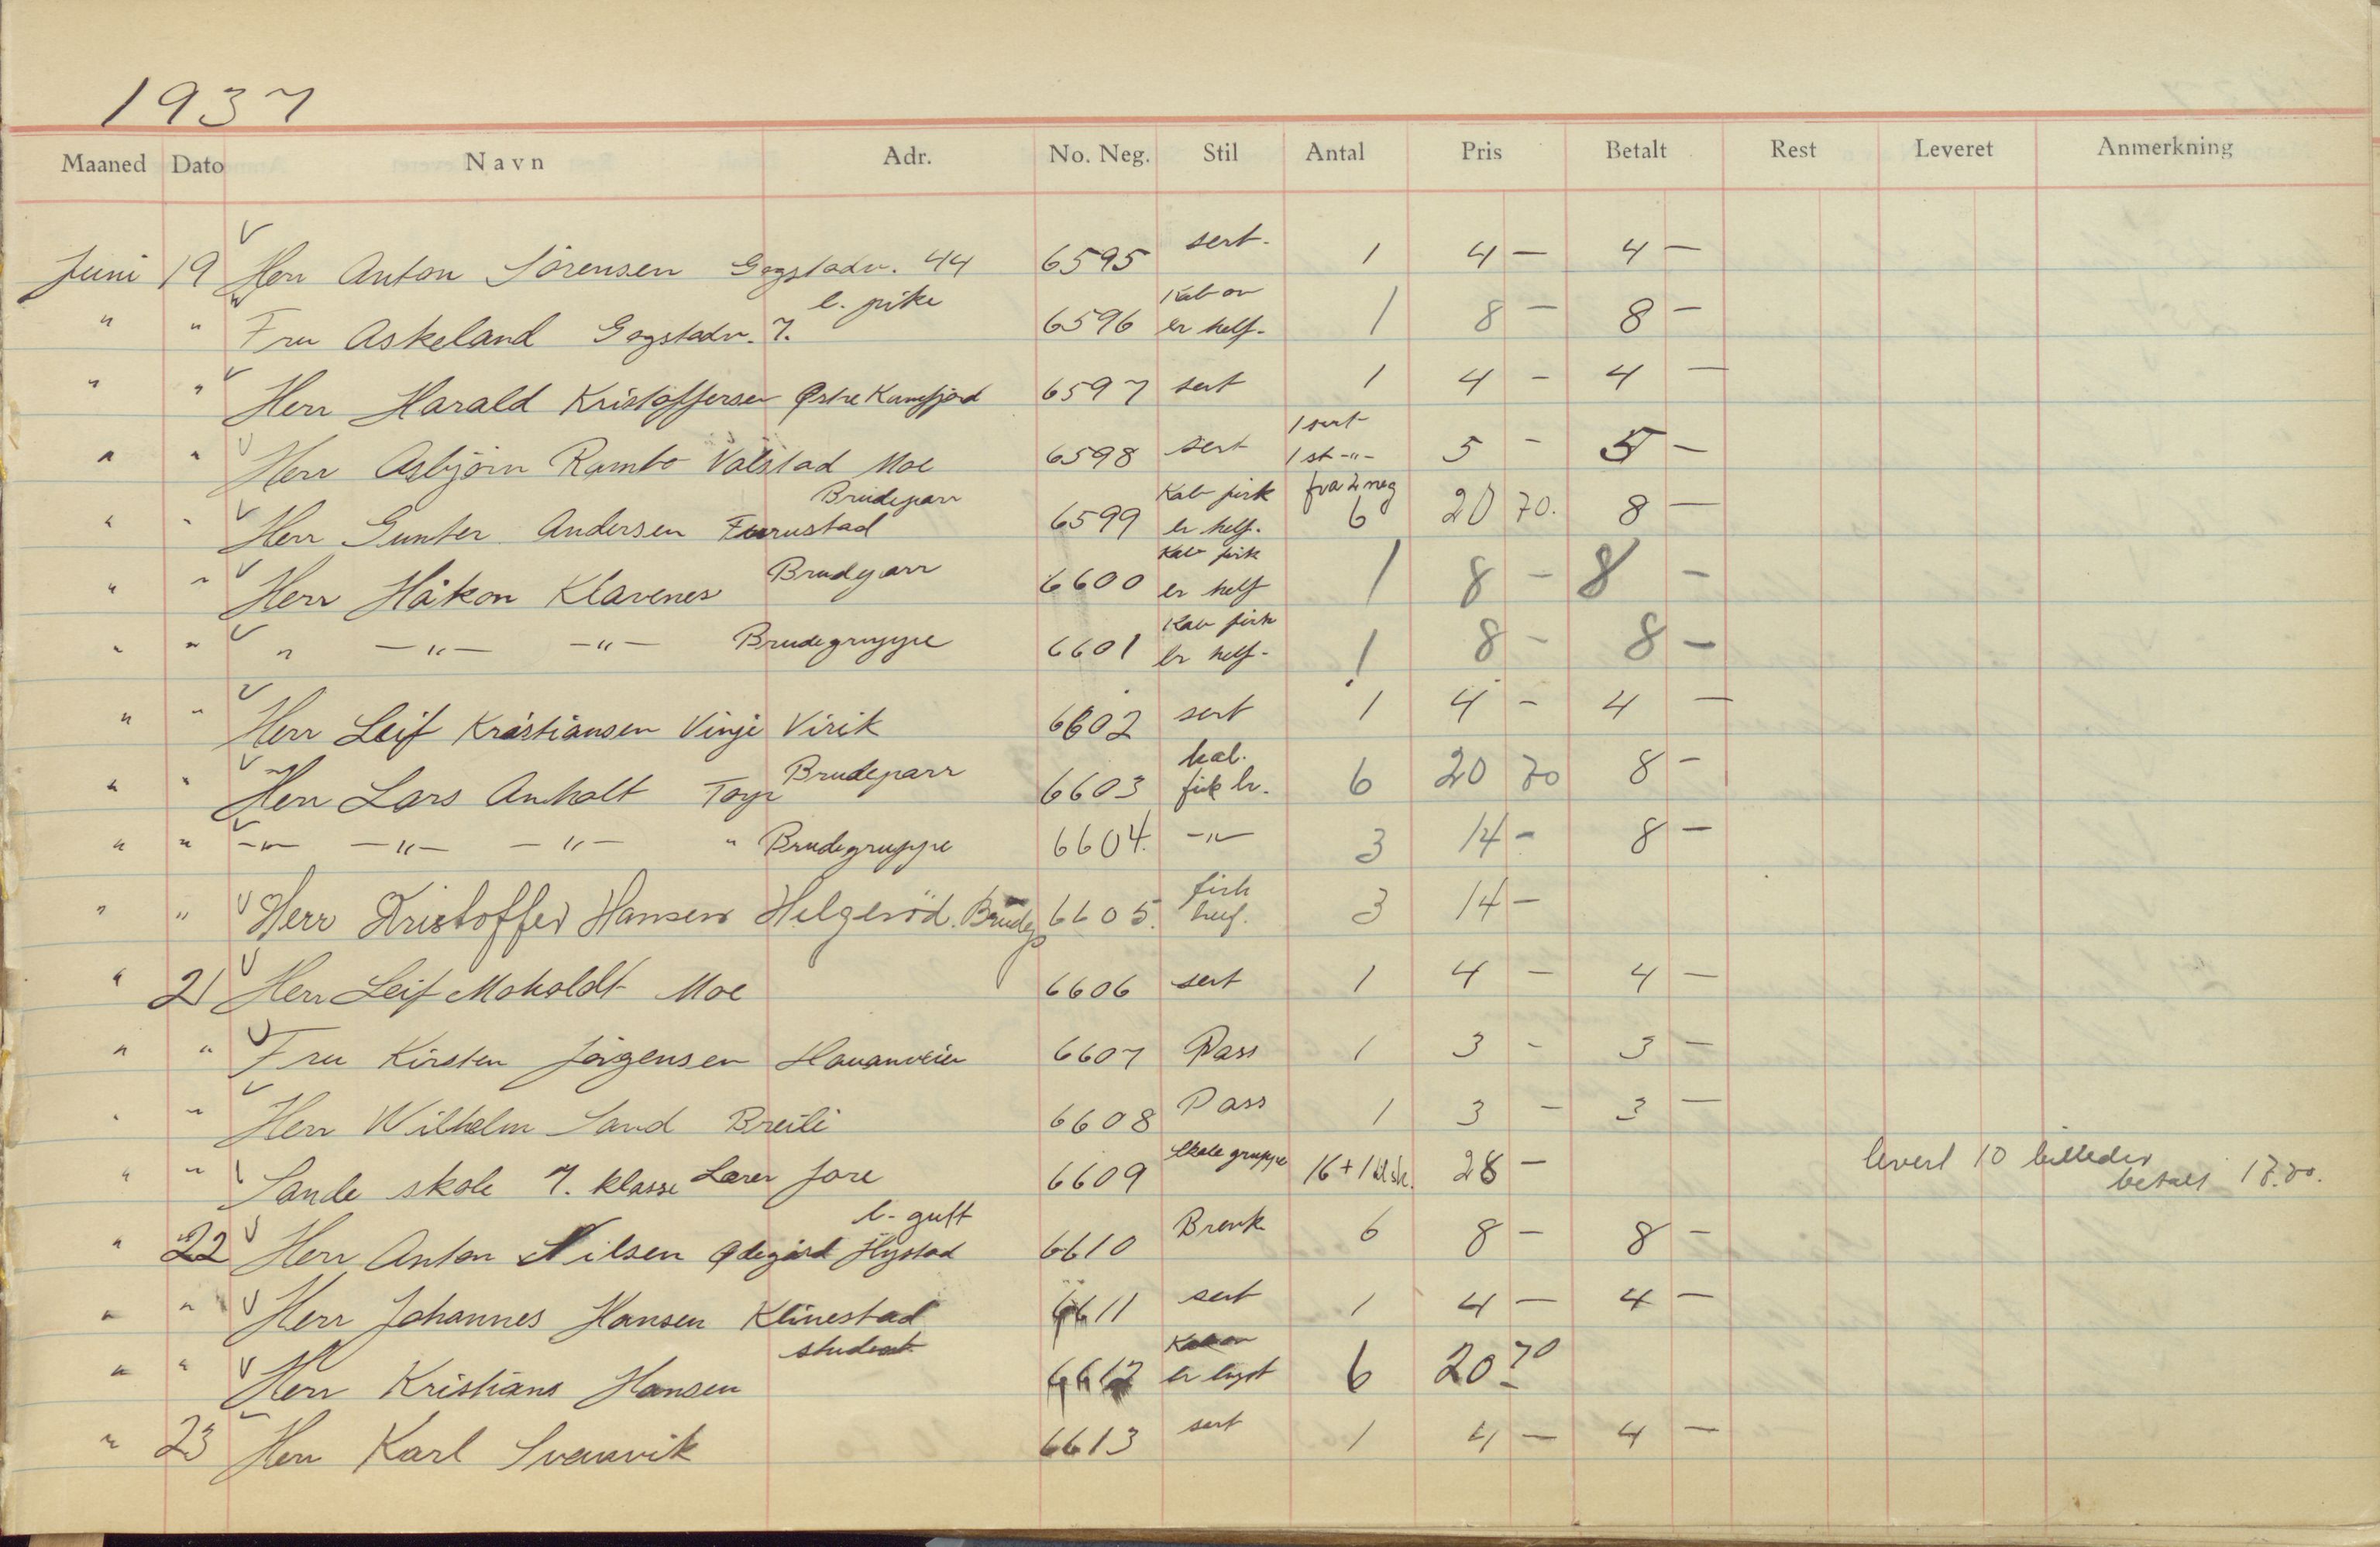 1937
Maaned Dato Navn Adr. No. Neg. Stil Antal Pris Betalt Rest Leveret Anmerkning
Juni 19 Herr Anton Sörensen Gogstadv. 44 6595 sert. 1 4 — 4 —
" " Fru Askeland Gogstadv. 7. l. pike 6596 Kab ov er helf. 1 8 — 8 —
" " Herr Harald Kristoffersen Østre Kamfjord 6597 sert 1 4 - 4 —
" " Herr Asbjörn Rambo Valstad Moe 6598 sert 1 sert 1 st -"- 5 - 5 —
" " Herr Gunter Andersen Furustad Brudeparr 6599 Kab firk er helf. fra 2 neg 6 20 70. 8 —
" " Herr Håkon Klavenes Brudparr 6600 Kab firk er helf 1 8 - 8 -
" " " —"— —"— Brudegruppe 6601 Kab firk er helf. 1 8 - 8 -
" " Herr Leif Kristiansen Vinje Virik 6602 sert 1 4 - 4 —
" " Herr Lars Anholt Brudeparr 6603 kab. firk br. 6 20 70 8 -
" " -"- —"— —"— " Brudegruppe 6604. -"- 3 14 - 8 -
" " Herr Kristoffer Hansen Helgeröd. Brudep 6605. firk 3 14 -
" 21 Herr Leif Moholdt Moe 6606 sert 1 4 — 4 —
" " Fru Kirsten Jörgensen Havanveien 6607 Pass 1 3 - 3 —
" " Herr Wilhelm Sand Breili 6608 Pass 1 3 - 3 —
" " Sande skole 7. klasse Lærer Jore 6609 Skole gruppe 16 + 1 28 — levert 10 billeder betalt 17.00.
" 22 Herr Anton Nilsen Ødegård Hystad l. gutt 6610 Brevk 6 8 - 8 -
" " Herr Johannes Hansen Klinestad 6611 sert 1 4 — 4 —
" " Herr Kristians Hansen student 6612 Kab ov er 6 20 70
" 23 Herr Karl Svensvik 6613 sert 1 4 — 4 —